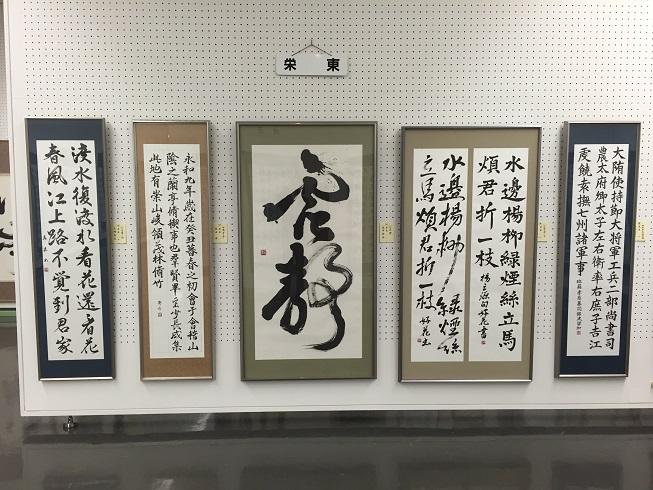 栄東
大隋使持節大将軍工兵二部尚書司
農太府卿太子左右衛率右庶子吉江
虔饒袁撫七州諸軍事
水邊楊柳綠煙絲立馬
煩君折一枝 楊巨源句 好花書
水邊楊柳綠煙絲
立馬煩君折一枝
永和九年歳在癸丑暮春之初會于會稽山
陰之蘭亭脩禊事也羣賢畢至少長咸集
此地有崇山峻領茂林脩竹
渡水復渡水看花還看花
春風江上路不覺到君家